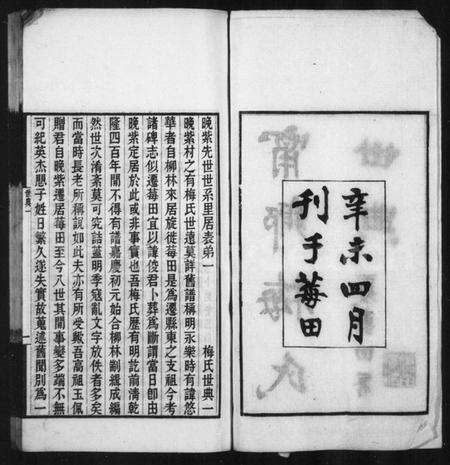 辛未四月
刊于莓田
晚紫先世世系里居表第一　梅氏世典一
晚紫村之有梅氏世遠莫詳舊譜稱明永樂時有諱悠
華者自柳林來居旋徙莓田是為遷縣東之支祖今考
諸碑志似遷莓田宜以諱俊君卜葬為斷謂當日卽由
晚紫定居於此或非事實也吾梅氏歷有明訖前清乾
隆四百年間不得有譜嘉慶初元始合柳林劄掇成編
然世次淆紊莫可究詰蓋明季寇亂文字放佚者多矣
而當時長老所稱說如此夫亦有所受歟吾高祖玉佩
贈君自晚紫遷居莓田至今八世其間事變多端不無
可紀英杰懸子姓日繁久逺失實故蒐述舊聞別為一